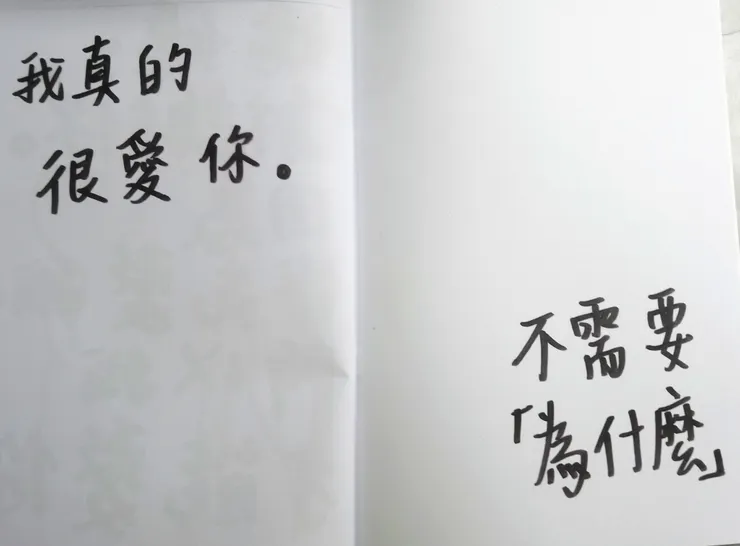 我真的
很愛你.
不需要
「為什麼」